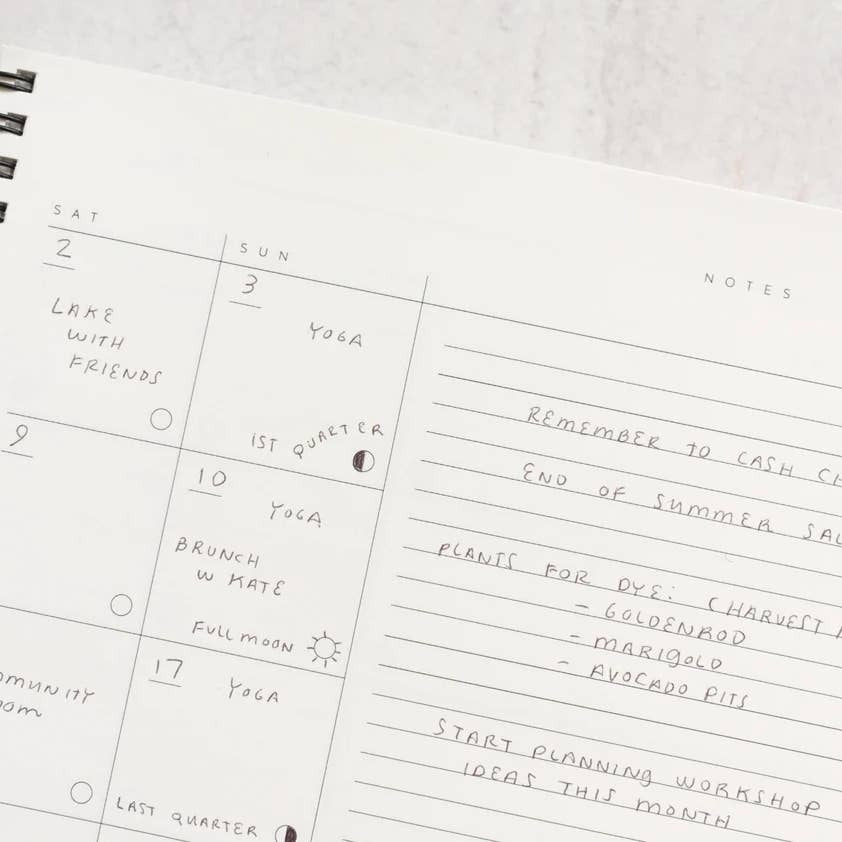 SAT
SUN
NOTES
2
LAKE
WITH
FRIENDS
3
YOGA
1ST QUARTER
9
10
YOGA
BRUNCH
W KATE
FULL MOON
17
YOGA
LAST QUARTER
REMEMBER TO CASH
END OF SUMMER
PLANTS FOR DYE: (HARVEST
- GOLDENROD
- MARIGOLD
- AVOCADO PITS
START PLANNING WORKSHOP
IDEAS THIS MONTH